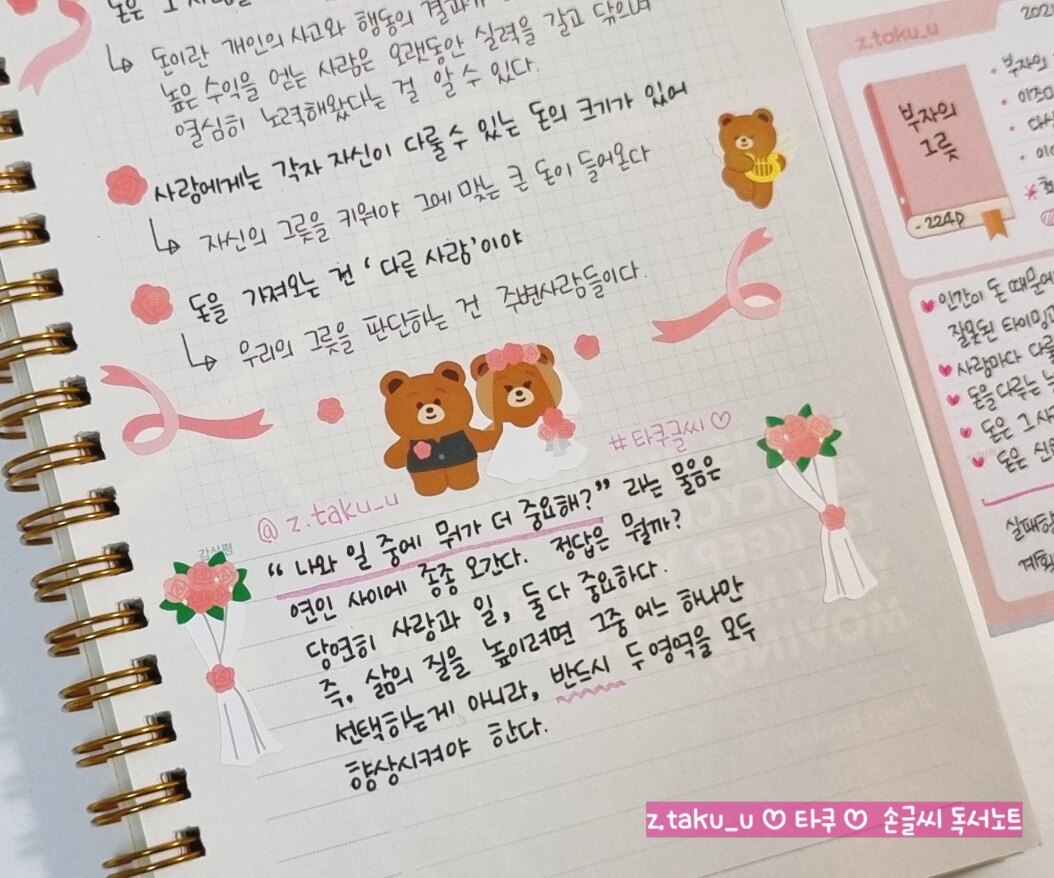 돈은 그 사람을
↳ 돈이란 개인의 사고와 행동의 결과
높은 수익을 얻는 사람은 오랫동안 실력을 갈고 닦으며
열심히 노력해왔다는 걸 알 수 있다.
사람에게는 각자 자신이 다룰 수 있는 돈의 크기가 있어
↳ 자신의 그릇을 키워야 그에 맞는 큰 돈이 들어온다
돈을 가져오는 건 '다른 사람'이야
↳ 우리의 그릇을 판단하는 건 주변사람들이다.
#타쿠글씨♡
@z.taku_u
감상평
"나와 일 중에 뭐가 더 중요해?" 라는 물음은
연인 사이에 종종 오간다. 정답은 뭘까?
당연히 사랑과 일, 둘다 중요하다.
즉, 삶의 질을 높이려면 그중 어느 하나만
선택하는게 아니라, 반드시 두영역을 모두
향상시켜야 한다.
z.taku_u
202
부자의
그릇
-224p
· 부자의
· 이즈미
· 다산
♥인간이 돈 때문에
잘못된 타이밍과
♥사람마다 다룰
♥돈을 다루는
♥돈은 그 사
♥돈은 신
실패
계획
z.taku_u ♡ 타쿠 ♡ 손글씨 독서노트